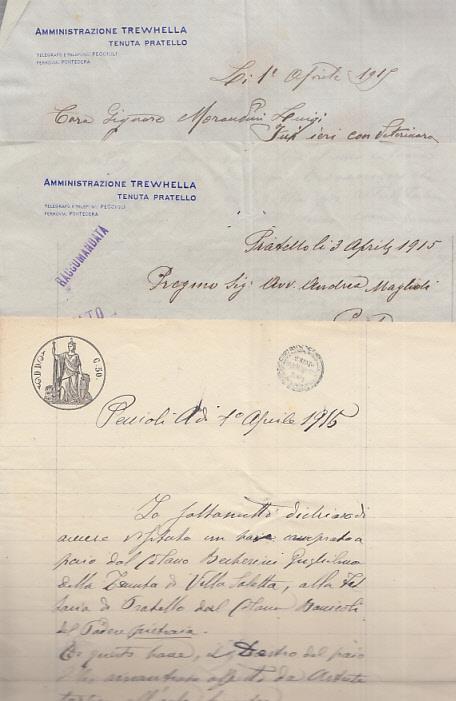 AMMINISTRAZIONE TREWHELLA
TENUTA PRATELLO
TELEGRAFO E TELEFONO PECCIOLI
FERROVIA PONTEDERA
Li 1° Aprile 1915
Caro Signore Morandini Luigi
ieri con Veterinara
AMMINISTRAZIONE TREWHELLA
TENUTA PRATELLO
TELEGRAFO E TELEFONO PECCIOLI
FERROVIA PONTEDERA
RACCOMANDATA
Pratello li 3 Aprile 1915
Pregmo Sig. Avv. Andrea Maglioli
C. 50
Peccioli A dì 1° Aprile 1915
Io sottoscritto dichiaro di
avere visitato un bove comprato a
paio dal Colono Guglielmo
della Tenuta di Villa Saletta, alla Fat
toria di Pratello dal Colono
del Podere pietraia.
questo bove, il Destro del paio